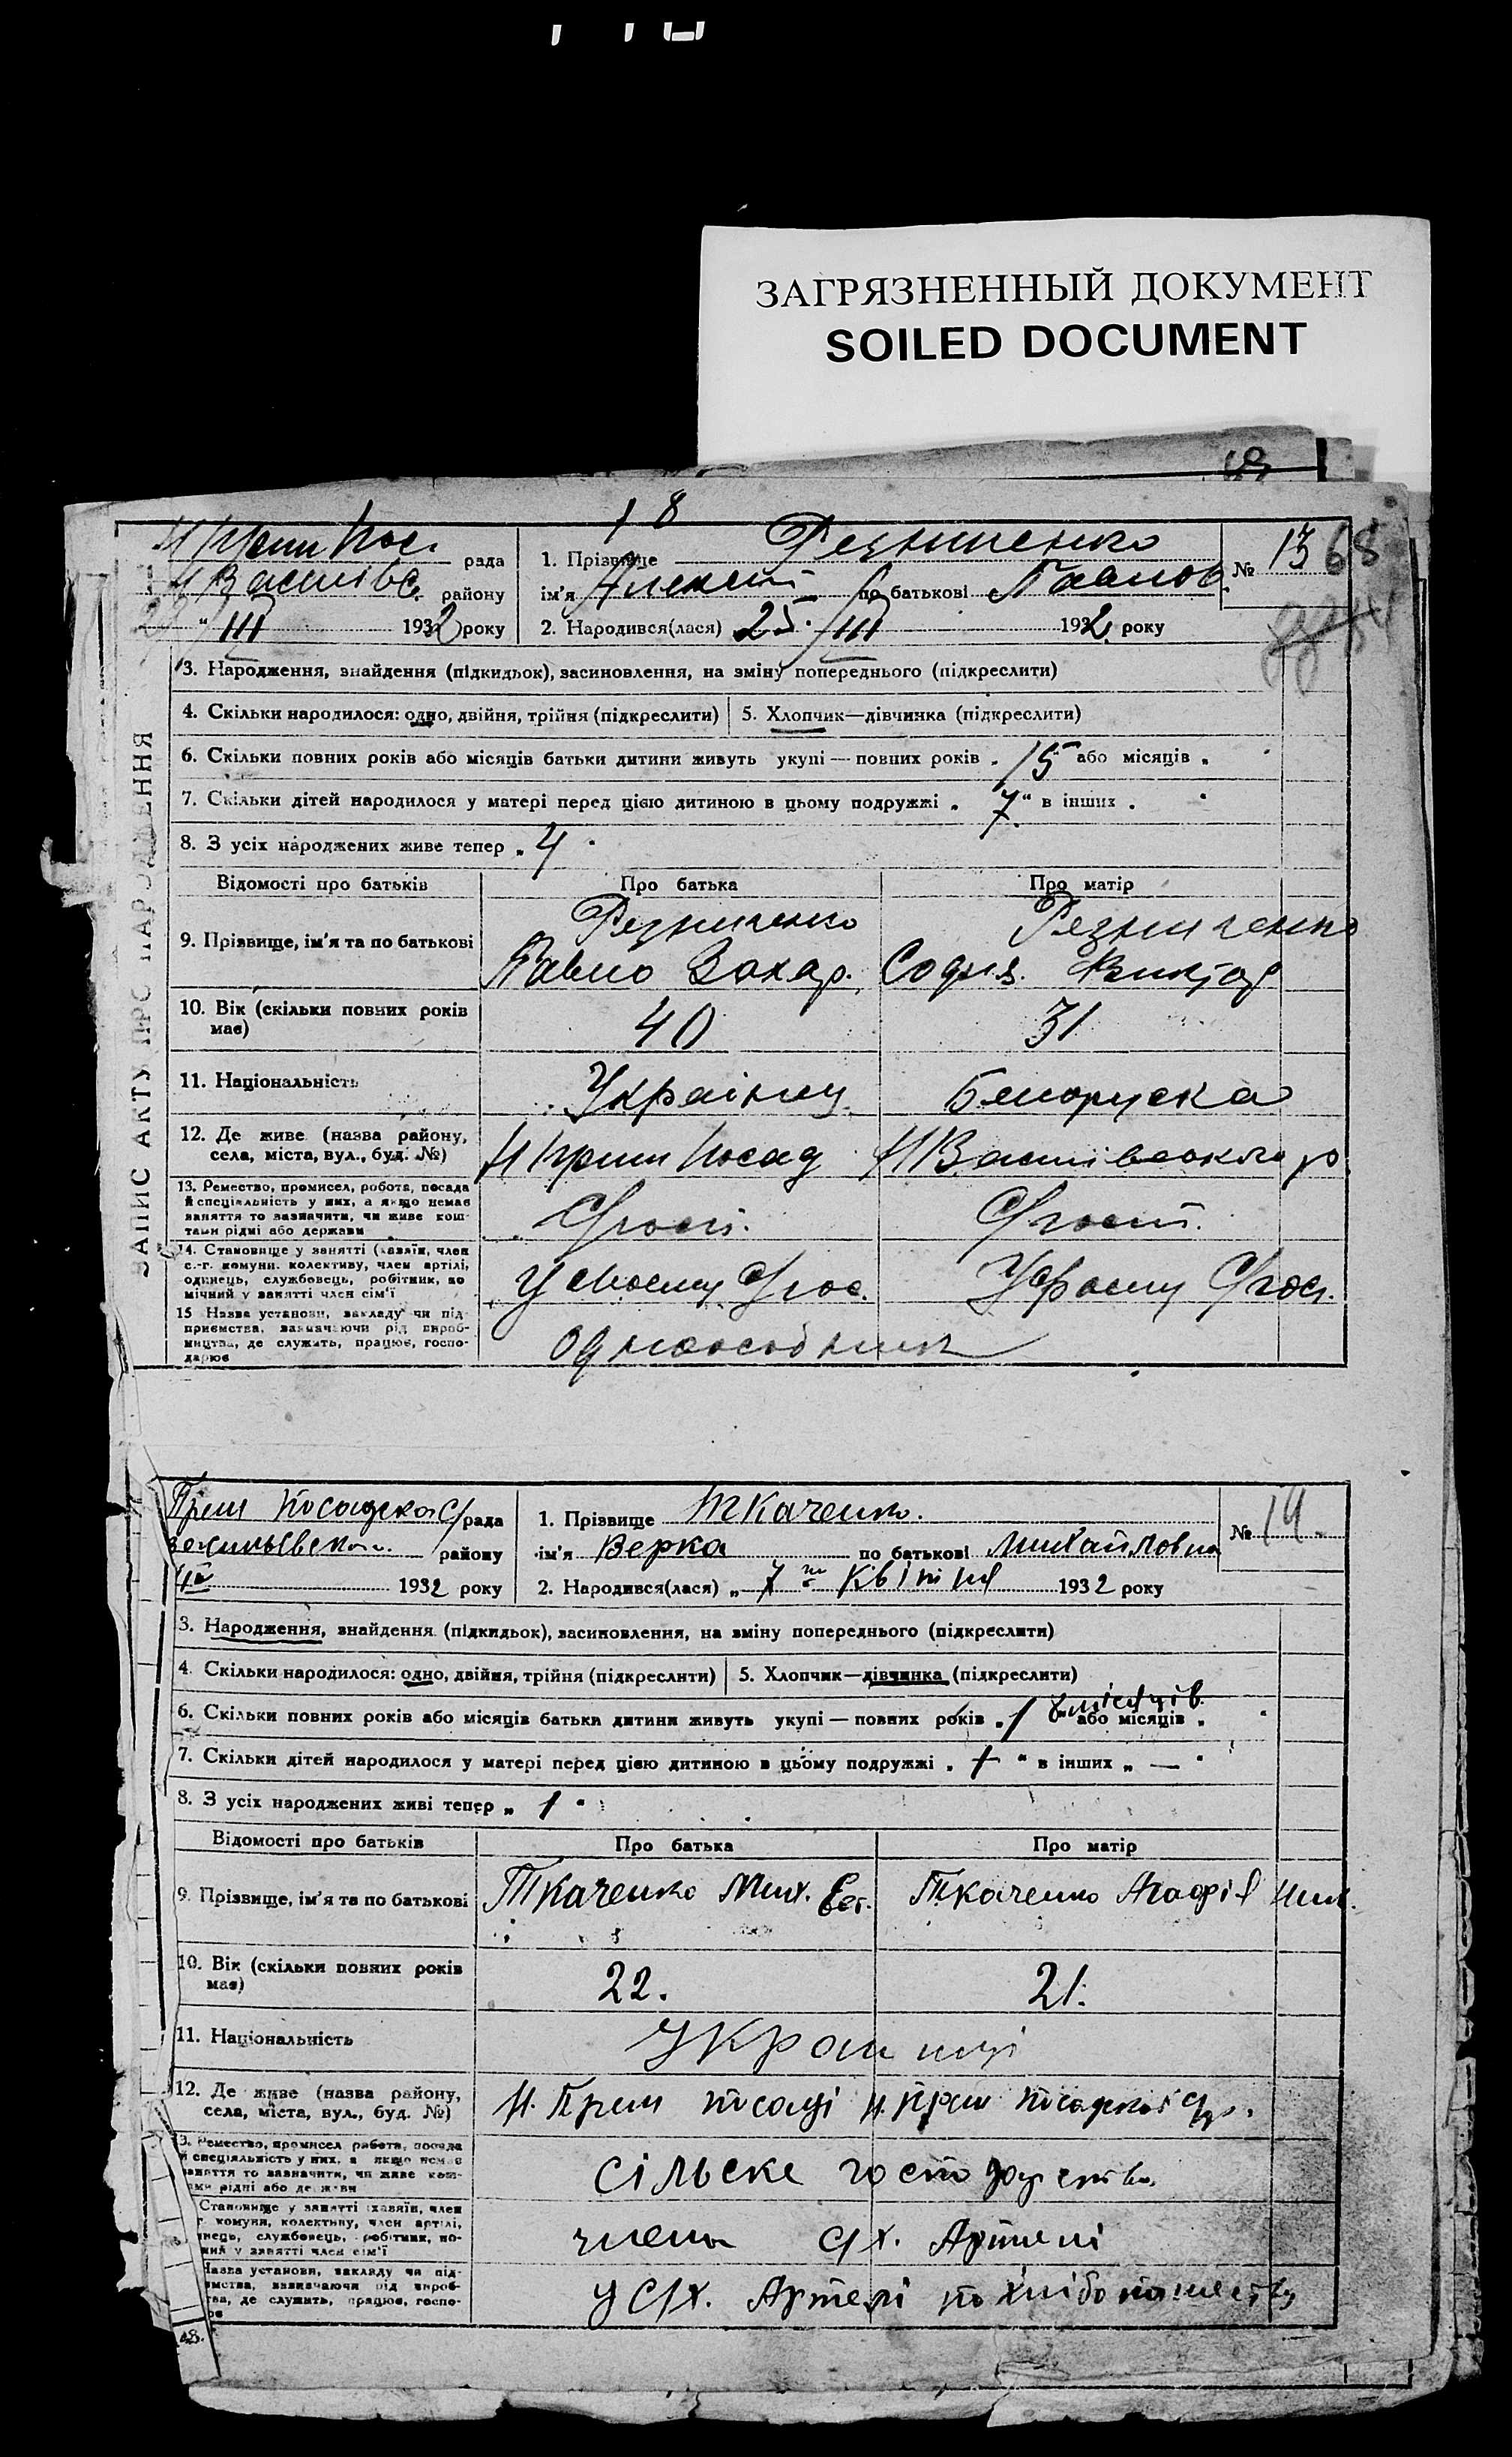 ЗАГРЯЗНЕННЫЙ ДОКУМЕНТ
SOILED DOCUMENT
18
рада
району
III 1932 року
1. Прізвище Резниченко
ім'я Алексій по батькові Павлов.
2. Народився(лася) 25. III 1932 року
№ 13
68
ЗАПИС АКТУ ПРО НАРОДЖЕННЯ
3. Народження, знайдення (підкидьок), засиновлення, на зміну попереднього (підкреслити)
4. Скільки народилося: одно, двійня, трійня (підкреслити) 5. Хлопчик—дівчинка (підкреслити)
6. Скільки повних років або місяців батьки дитини живуть укупі — повних років „ 15 або місяців „
7. Скільки дітей народилося у матері перед цією дитиною в цьому подружжі „ 7 " в інших „
8. З усіх народжених живе тепер „ 4
Відомості про батьків Про батька Про матір
9. Прізвище, ім'я та по батькові
Резниченко Резниченко
Павло Захар. София Виктор
10. Вік (скільки повних років
має)
40 31
11. Національність Українец Белоруска
12. Де живе (назва району,
села, міста, вул., буд. №)
Н Приш Посад Н Василівського р.
13. Ремество, промисел, робота, посада
й спеціяльність у них, а якщо немає
заняття то зазначити, чи живе кош-
тами рідні або держави
С/госп. С/госп.
14. Становище у занятті (хазяїн, член
с.-г. комуни, колективу, член артілі,
одинець, службовець, робітник, по
мічний у занятті член сім'ї
У своему С/гос. У своему С/госп.
15 Назва установи, закладу чи під-
приємства, зазначаючи рід вироб-
ництва, де служить, працює, госпо-
дарює
Одноособник
Приш Посадська С/рада
району
1932 року
1. Прізвище Ткаченко.
ім'я Верка по батькові Михайловна
2. Народився(лася) „ 7го Квітня 1932 року
№ 14.
3. Народження, знайдення (підкидьок), засиновлення, на зміну попереднього (підкреслити)
4. Скільки народилося: одно, двійня, трійня (підкреслити) 5. Хлопчик—дівчинка (підкреслити)
6. Скільки повних років або місяців батьки дитини живуть укупі — повних років „ 1 місяців або місяців „
7. Скільки дітей народилося у матері перед цією дитиною в цьому подружжі „ " в інших „ —
8. З усіх народжених живі тепер „ 1 "
Відомості про батьків Про батька Про матір
9. Прізвище, ім'я та по батькові Ткаченко Мих. Ткаченко Агафія
10. Вік (скільки повних років
має)
22. 21.
11. Національність Украинці
12. Де живе (назва району,
села, міста, вул., буд. №)
Н. Приш посаді Н. Приш посадської
3. Ремество, промисел робота, посада
й спеціяльність у них, а якщо немає
заняття то зазначити, чи живе кош-
ами рідні або держави
сільске господарство
Становище у занятті хазяїн, член
г. комуни, колективу, член артілі,
инець, службовець, робітник, по-
ний у занятті член сім'ї
члени С/х. Артели
Назва установи, закладу чи під-
ємства, зазначаючи рід вироб-
тва, де служить, працює, госпо-
ює
у С/х. Артелі по хлібопашеству
48.